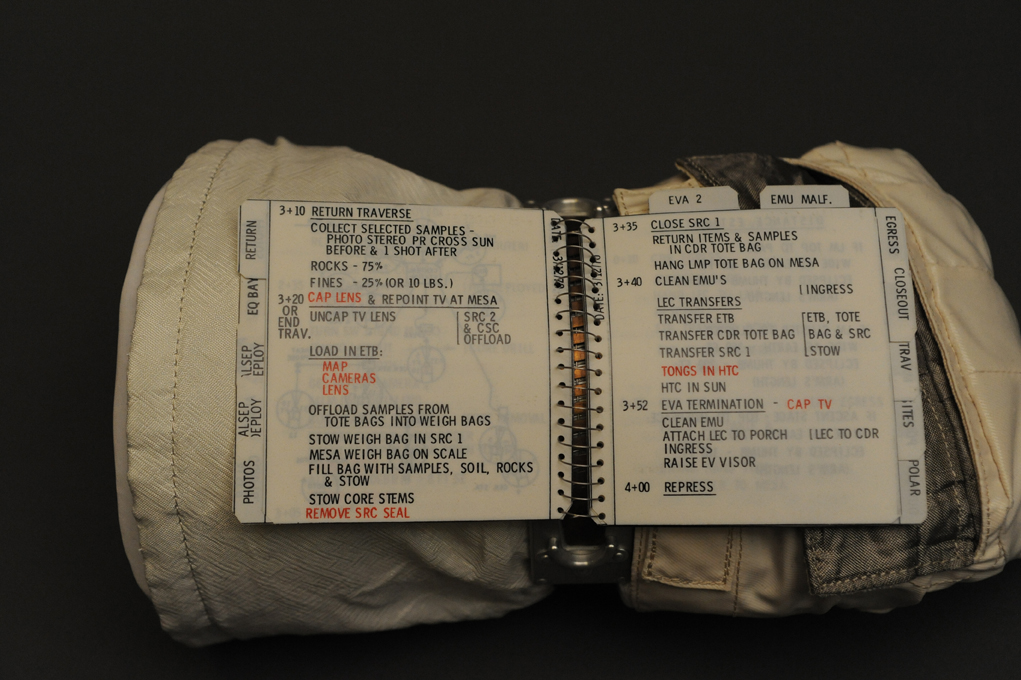 3+10 RETURN TRAVERSE
COLLECT SELECTED SAMPLES -
PHOTO STEREO PR CROSS SUN
BEFORE & 1 SHOT AFTER
ROCKS - 75%
FINES - 25% (OR 10 LBS.)
3+20 CAP LENS & REPOINT TV AT MESA
OR
END
TRAV.
UNCAP TV LENS
SRC 2
& CSC
OFFLOAD
LOAD IN ETB:
MAP
CAMERAS
LENS
OFFLOAD SAMPLES FROM
TOTE BAGS INTO WEIGH BAGS
STOW WEIGH BAG IN SRC 1
MESA WEIGH BAG ON SCALE
FILL BAG WITH SAMPLES, SOIL, ROCKS
& STOW
STOW CORE STEMS
REMOVE SRC SEAL
RETURN
EQ BAY
ALSEP
DEPLOY
PHOTOS
EVA 2
EMU MALF.
3+35 CLOSE SRC 1
RETURN ITEMS & SAMPLES
IN CDR TOTE BAG
HANG LMP TOTE BAG ON MESA
3+40 CLEAN EMU'S
INGRESS
LEC TRANSFERS
TRANSFER ETB
TRANSFER CDR TOTE BAG
TRANSFER SRC 1
ETB, TOTE
BAG & SRC
STOW
TONGS IN HTC
HTC IN SUN
3+52 EVA TERMINATION - CAP TV
CLEAN EMU
ATTACH LEC TO PORCH
LEC TO CDR
INGRESS
RAISE EV VISOR
4+00 REPRESS
EGRESS
CLOSEOUT
TRAV
POLAR